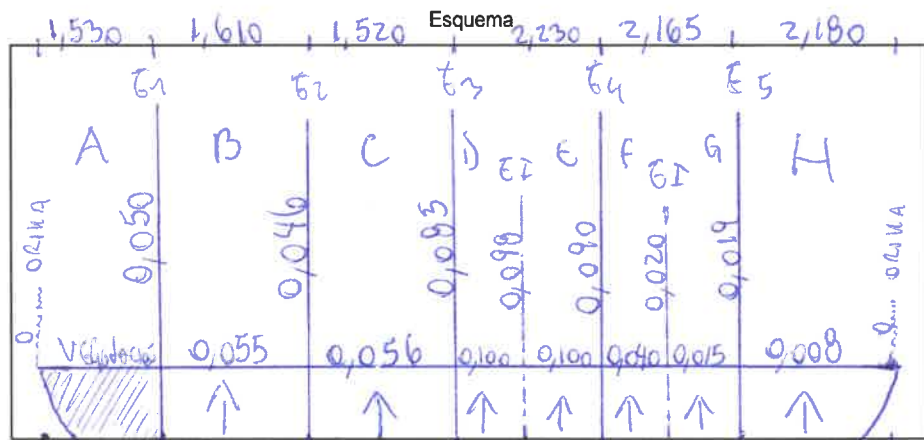 Esquema
1,530 1,610 1,520 2,230 2,165 2,180
E1 E2 E3 E4 E5
A B C D EI E F EI G H
0 ORIHA 0,050 0,046 0,083 0,098 0,090 0,020 0,019 0 ORIHA
0,055 0,056 0,100 0,100 0,040 0,015 0,008